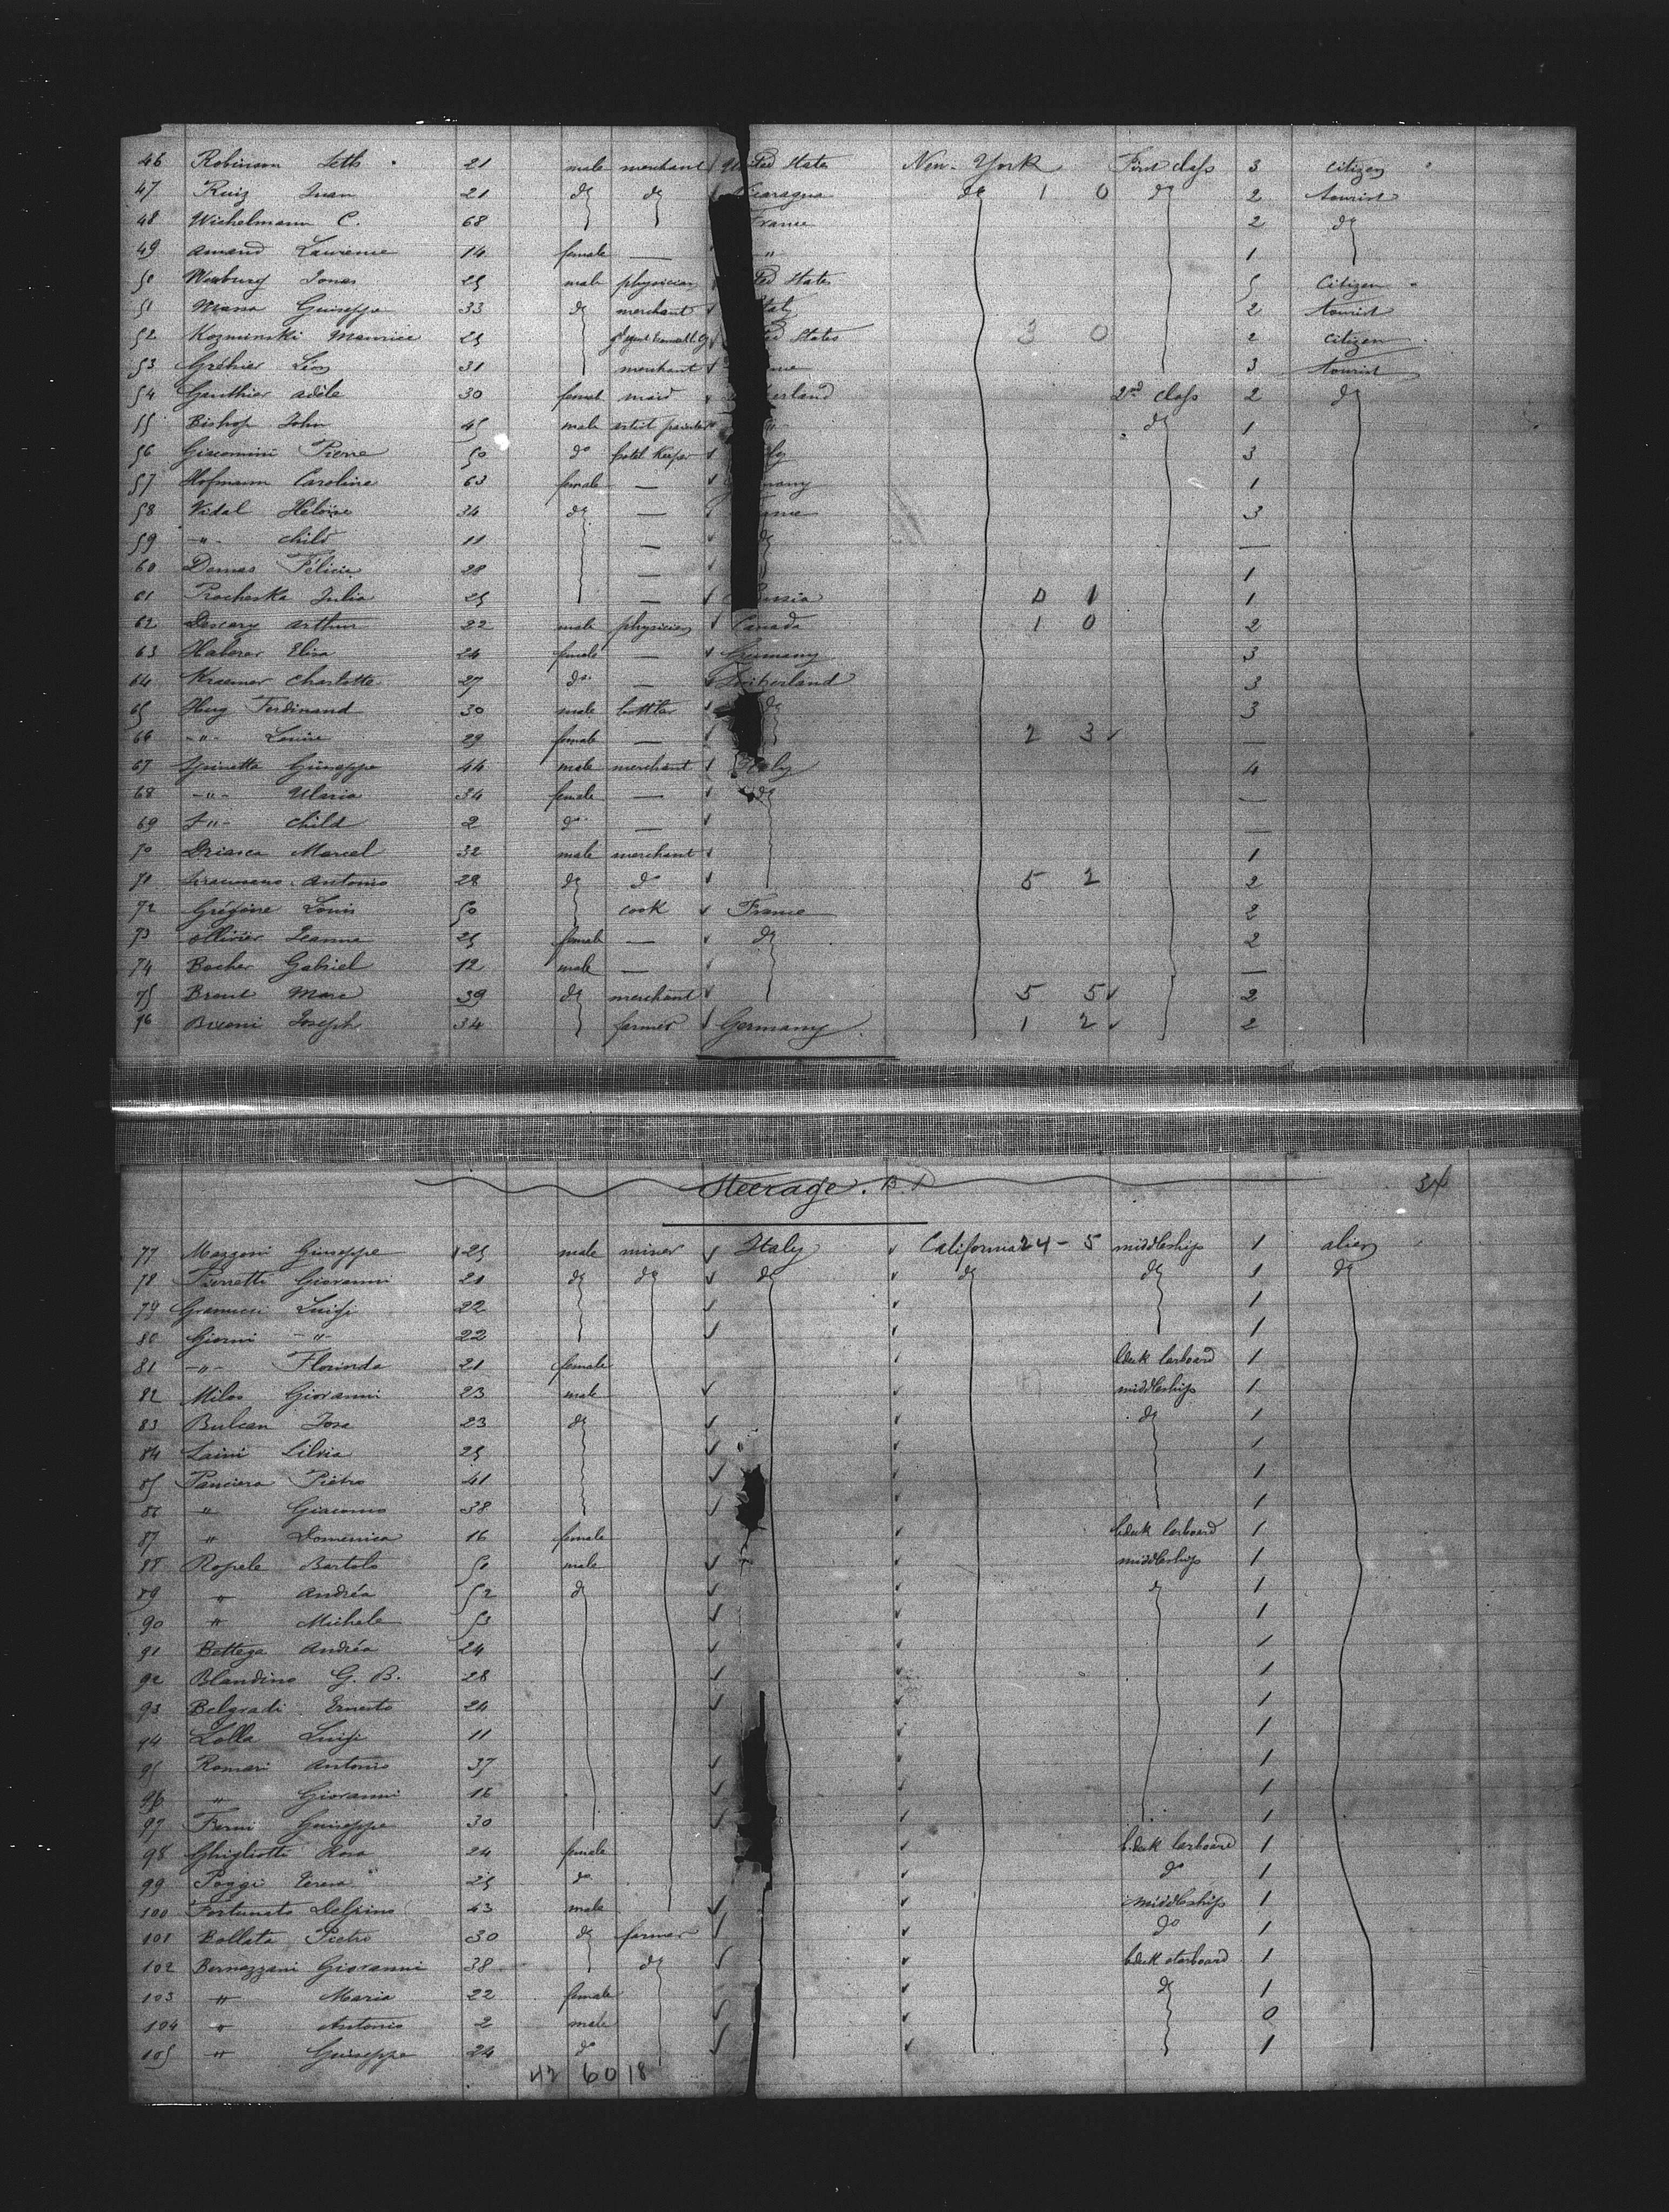 46 Robinson Seth 21 male merchant ted States New-York First class 3 citizen
47 Ruiz Juan 21 do do caragua do 1 0 do 2 tourist
48 Wichelmann C. 68 France 2 do
49 Amand Laurence 14 female — " 1
50 Jonas 25 male physician ted States 5 Citizen
51 Giuseppe 33 do merchant Italy 2 tourist
52 Kozminski Maurice 25 ed States 3 0 2 citizen
53 Gréhier Léon 31 merchant 3 tourist
54 Gauthier adèle 30 femal maid erland 2nd class 2 do
55 Bishop John 45 male artist painter do 1
56 Giacomini Pierre 50 do hotel keeper ly 3
57 Hofmann Caroline 63 female — many 1
58 Vidal Héloïse 34 do — 3
59 -"- child 11 — do —
60 Demas Félicie 28 — 1
61 Procheska Julia 25 — ussia 0 1 1
62 Descary arthur 22 male physician Canada 1 0 2
63 Haberer Elisa 24 female — Germany 3
64 Kraemer Charlotte 27 do — Switzerland 3
65 Hug Ferdinand 30 male do 3
66 -"- Louise 29 female — 2 3 —
67 Spinetta Giuseppe 44 male merchant Italy 4
68 -"- Maria 34 female — do —
69 -"- child 2 do — —
70 Marcel 32 male merchant 1
71 Antonio 28 do do 5 2 2
72 Grégoire Louis 50 cook France 2
73 Ollivier Jeanne 25 female — do 2
74 Bocher Gabriel 12 male — —
75 Marc 39 do merchant 5 5 2
76 Joseph 34 farmer Germany 1 2 2
Steerage.
77 Mazzoni Giuseppe 25 male miner Italy California 24 - 5 middleship 1 alien
78 Pierretti Giovanni 21 do do do do do 1 do
79 Granucci Luigi 22 1
80 Giorni -"- 22 1
81 -"- Florinda 21 female bdeck larboard 1
82 Milos Giovanni 23 male middleship 1
83 Bulcan Jose 23 do do 1
84 Laini Silvia 25 1
85 Panciera Pietro 41 1
86 " Giacomo 38 1
87 " Domenica 16 female bdeck larboard 1
88 Ropele Bortolo 50 male middleship 1
89 " Andréa 52 do do 1
90 " Michele 53 1
91 Bottega Andréa 24 1
92 Blandino G. B. 28 1
93 Belgradi Ernesto 24 1
94 Lolla Luigi 11 1
95 Romari Antonio 37 1
96 " Giovanni 16 1
97 Giuseppe 30 1
98 Ghigliotti Rosa 24 female b.deck larboard 1
99 Poggi Teresa 25 do do 1
100 Fortunato Delfino 43 male middleship 1
101 Bollata Pietro 30 do farmer do 1
102 Bernazzani Giovanni 38 do bdeck starboard 1
103 " Maria 22 female do 1
104 " Antonio 2 male 0
105 " Giuseppe 24 do 1
42 60 18